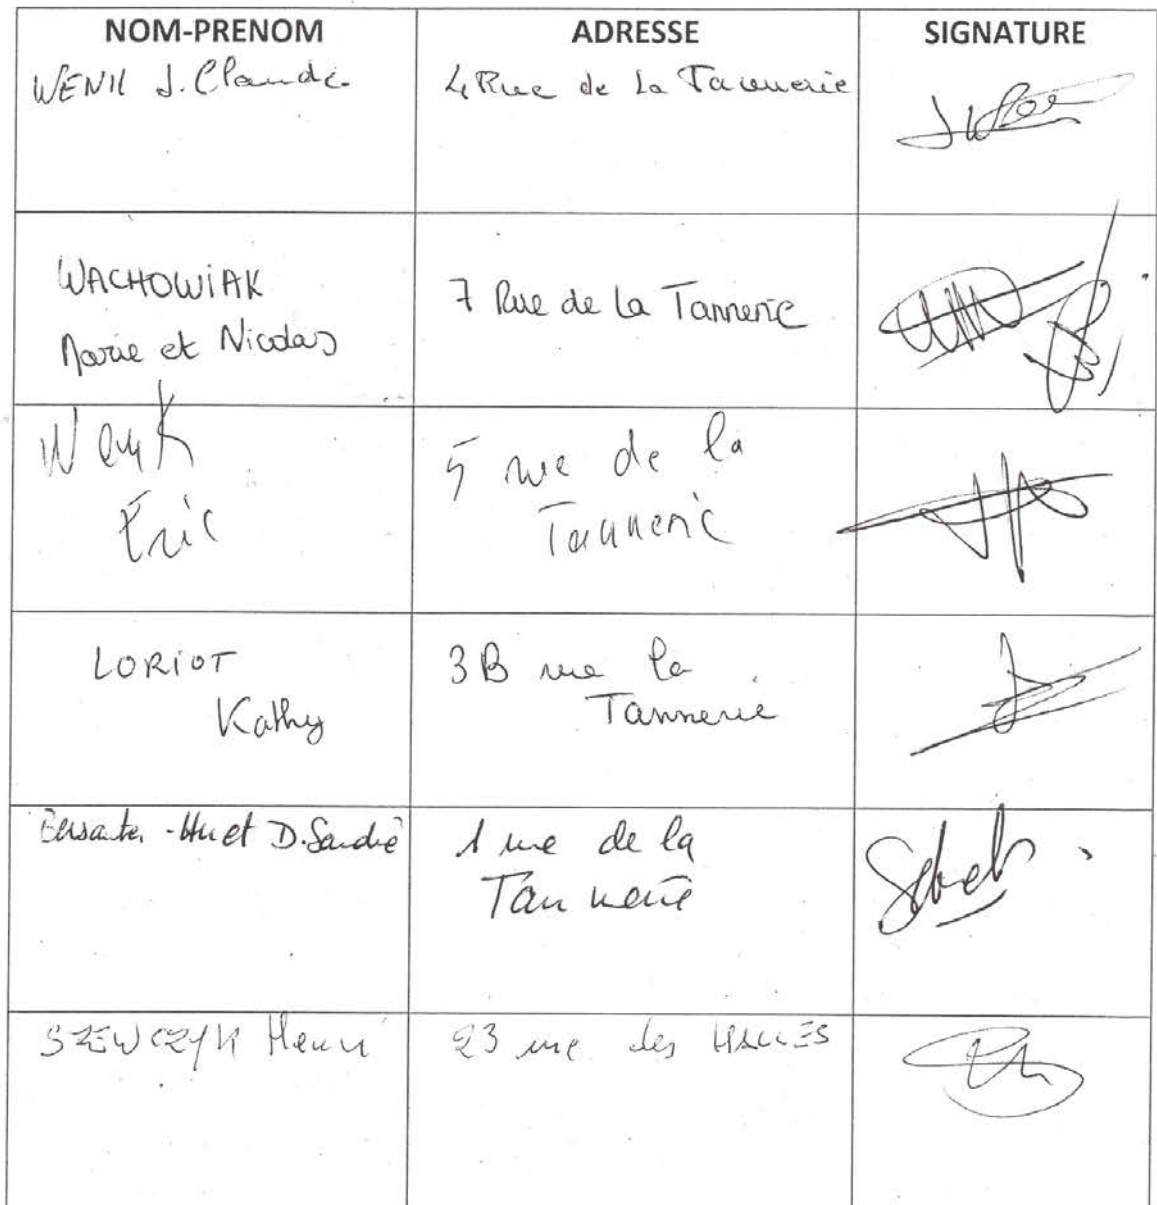 NOM-PRENOM ADRESSE SIGNATURE
WENK J. Claude 4 Rue de La Tannerie
WACHOWIAK
Marie et Nicolas
7 Rue de La Tannerie
Wenk
Éric
5 rue de la
Tannerie
LORIOT
Kathy
3B rue la
Tannerie
-Huet D. Sandie
1 rue de la
Tannerie
SZEWCZYK Henri 23 rue des HALLES